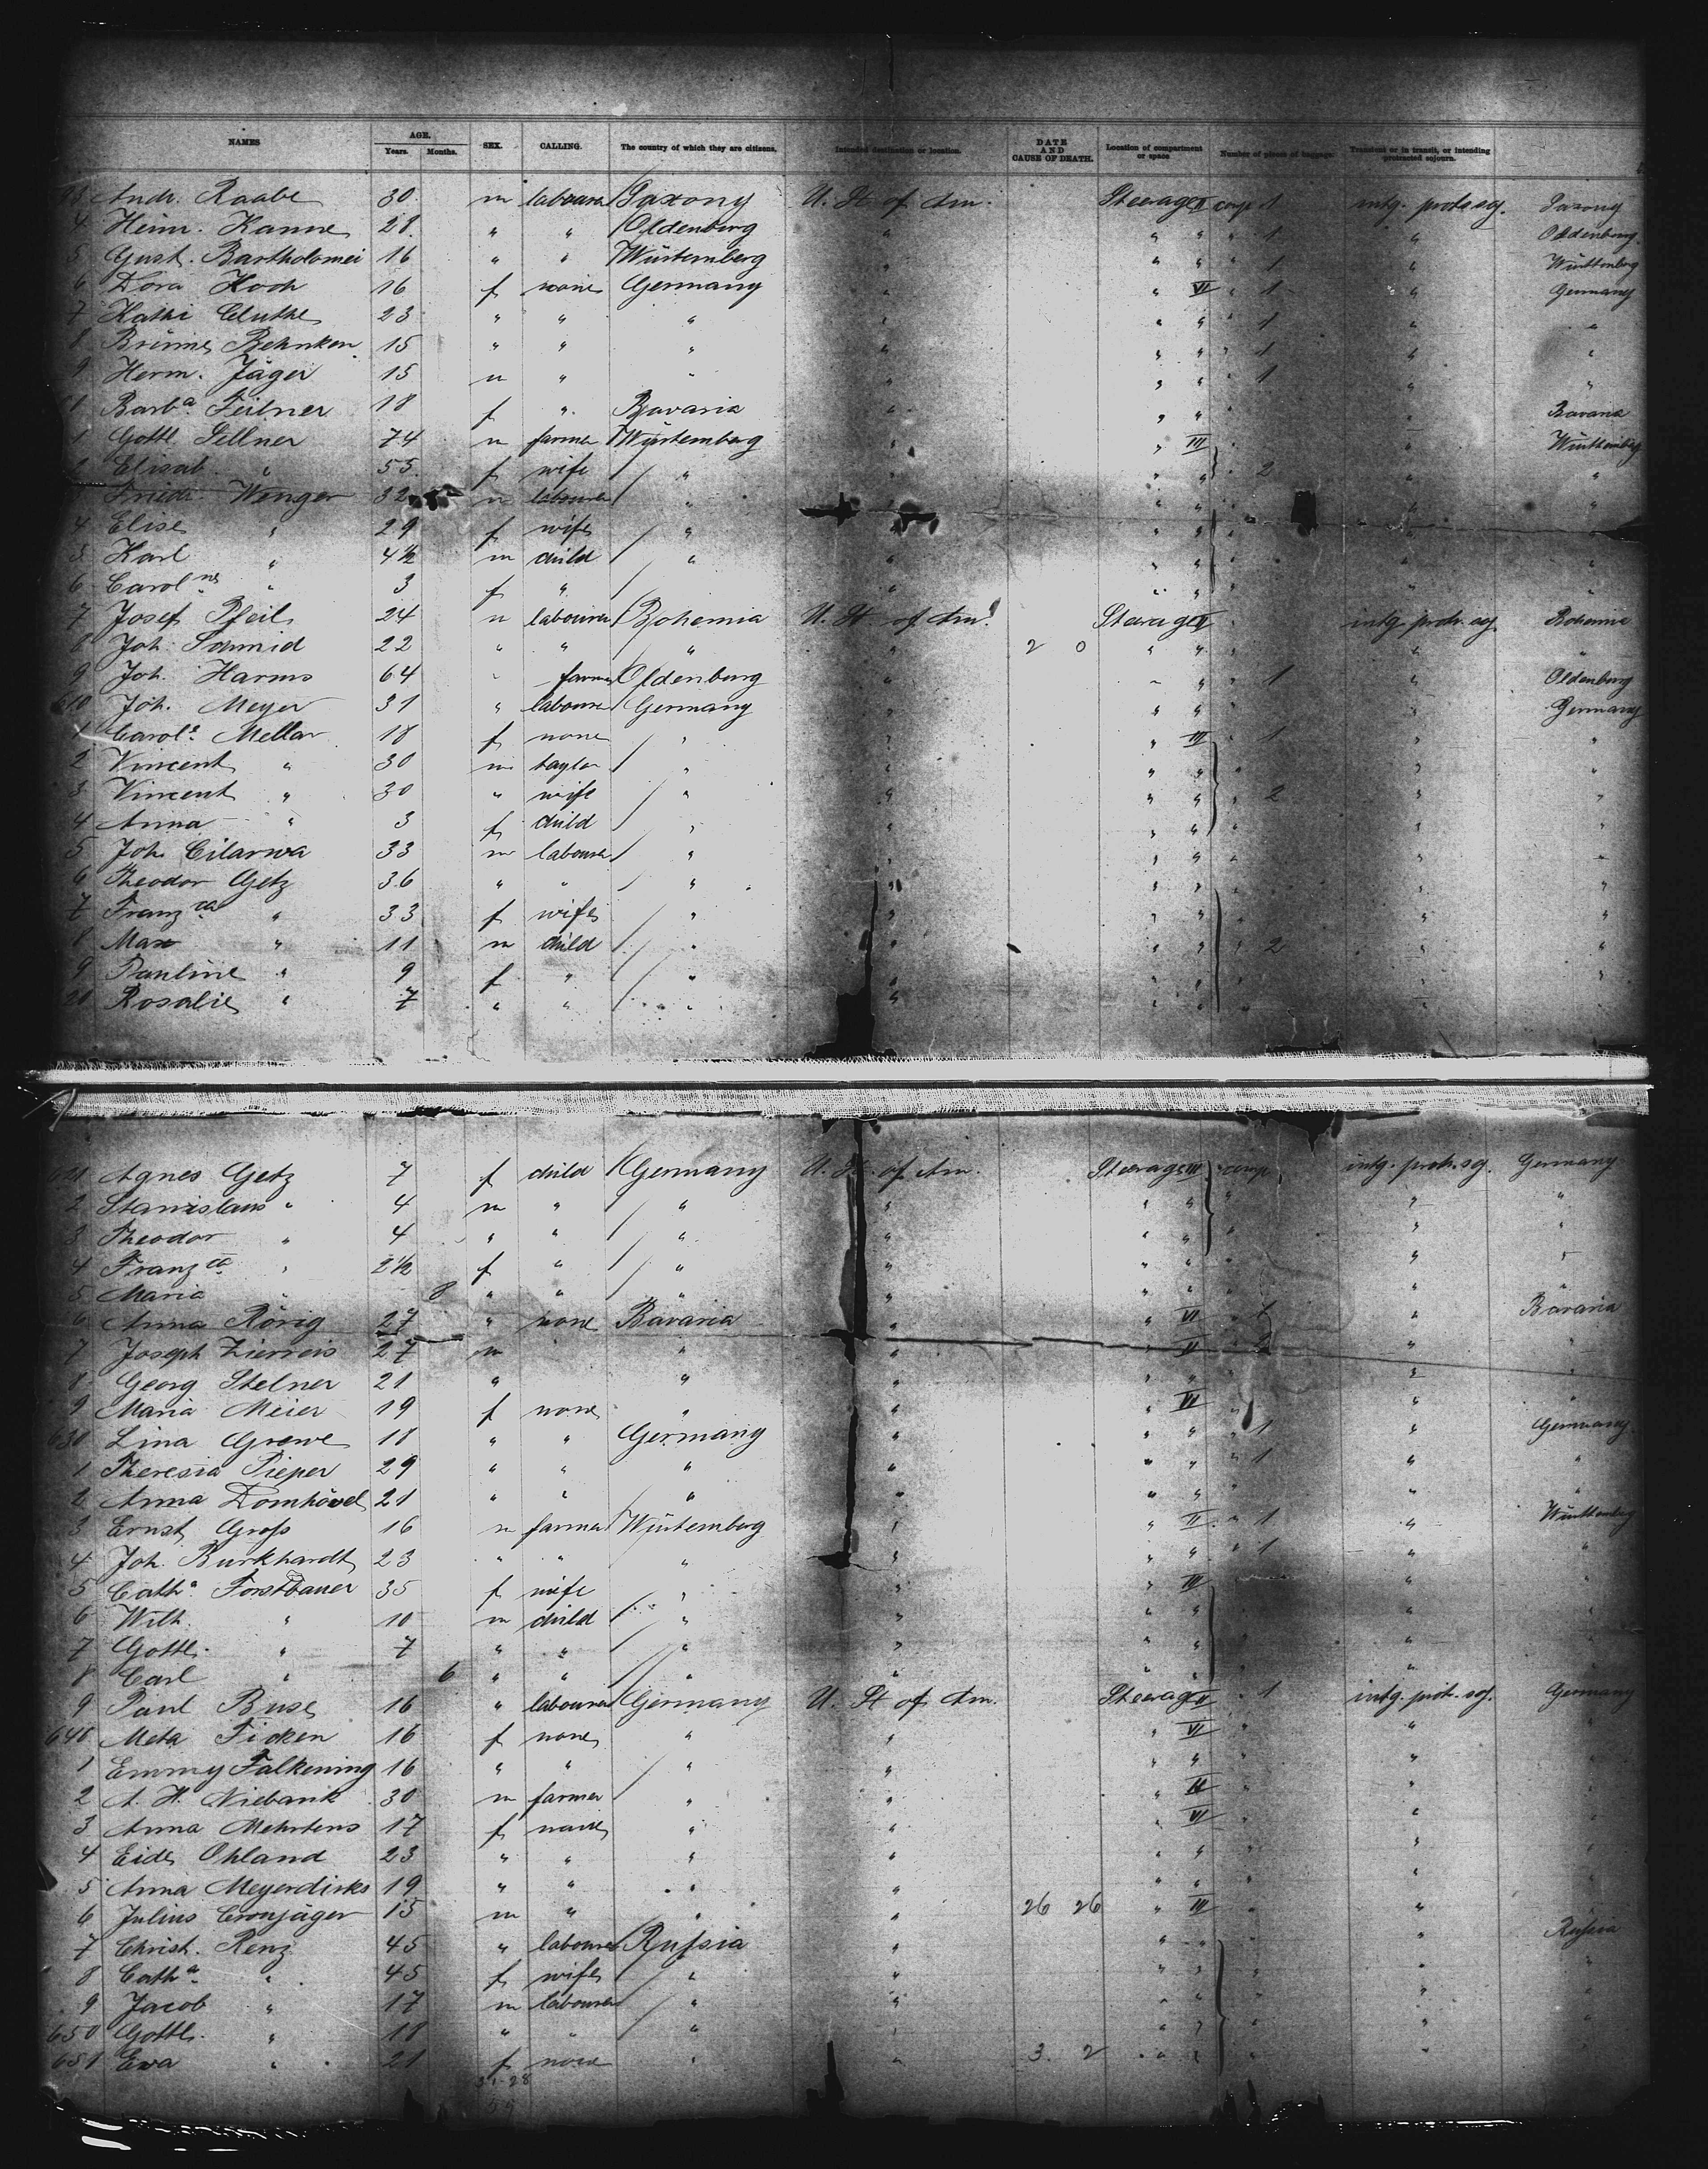 NAMES AGE. Years. Months. SEX. CALLING. The country of which they are citizens. Intended destination or location. DATE AND CAUSE OF DEATH. Location of compartment or space Number of pieces of baggage. Transient or in transit, or intending protracted sojourn.
Andr. Raabe 30 m labourer Saxony U. St. of Am. Steerage II comp 1 intg. protr. soj. Saxony
4 Heinr. Kanne 28 " " Oldenburg " " " " 1 " Oldenburg
5 Gust. Bartholomei 16 " " Würtemberg " " " " 1 " Württemberg
6 Dora Koch 16 f none Germany " " VI " 1 " Germany
7 Kathi 23 " " " " " " " 1 " "
8 Behnken 15 " " " " " " " 1 " "
9 Herm. Jäger 15 m " " " " " " 1 " "
Barba. Feilner 18 f " Bavaria " " " " Bavaria
1 Gottl. Sellner 74 m farmer Würtemberg " " III " " Württemberg
2 Elisab. " 55 f wife " " " " " 2 " "
Friedr. Wenger 32 m labourer " " " " " "
4 Elise " 29 f wife " " " " " "
5 Karl " 4½ m child " " " " " "
6 Carolne " 3 f " " " " " "
7 Josef Pfeil 24 m labourer Bohemia U. St. of Am. Steerage II " intg. protr. soj. Bohemia
8 Joh. Schmid 22 " " " " 2 0 " " " " "
9 Joh. Harms 64 " farmer Oldenburg " " " " 1 " Oldenburg
610 Joh. Meyer 31 " labourer Germany " " " " " Germany
1 Carola. Mellar 18 f none " " " III " 1 " "
2 Vincent " 30 m taylor " " " " " " "
3 Vincent " 30 " wife " " " " " 2 " "
4 Anna " 3 f child " " " " " " "
5 Joh. Cilarwa 33 m labourer " " " " " " "
6 Theodor Getz 36 " " " " " " " " "
7 Franzca " 33 f wife " " " " " " "
8 Max " 11 m child " " " " " 2 " "
9 Pauline " 9 f " " " " " " " "
20 Rosalie " 7 " " " " " " " " "
621 Agnes Getz 7 f child Germany U. St. of Am. Steerage III comp intg. protr. soj. Germany
2 Stanislaus " 4 m " " " " " " " "
3 Theodor " 4 " " " " " " " " "
4 Franzca " 2½ f " " " " " " "
5 Maria " 8 " " " " " " " "
6 Anna Rörig 27 " none Bavaria " " VI " " Bavaria
7 Joseph Zierreis 27 m " " " II " 2 "
8 Georg Stelner 21 " " " " " " "
9 Maria Meier 19 f none " " " VI " " "
630 Lina Grewe 18 " " Germany " " " " 1 " Germany
1 Theresia Pieper 29 " " " " " " " 1 " "
2 Anna Domhövel 21 " " " " " " " " "
3 Ernst Groß 16 m farmer Würtemberg " " II " 1 " Württemberg
4 Joh. Burkhardt 23 " " " " " " " 1 " "
5 Catha. Forstbauer 35 f wife " " " III " "
6 Wilh. " 10 m child " " " " " "
7 Gottl. " 7 " " " " " " " "
8 Carl " 6 " " " " " " " "
9 Paul Buse 16 " labourer Germany U. St. of Am. Steerage II " 1 intg. protr. soj. Germany
640 Meta Ficken 16 f none " " " VI " " "
1 Emmy Falkening 16 " " " " " " " "
2 A. H. Niebank 30 m farmer " " " III " " "
3 Anna Mehrtens 17 f none " " " VI " " "
4 Eide Ohland 23 " " " " " " " " "
5 Anna Meyerdirks 19 " " " " " " " "
6 Julius Cronjäger 15 m " " " 26 26 " III " "
7 Christ. Renz 45 " labourer Rußia " " " " " Rußia
8 Catha. " 45 f wife " " " " " "
9 Jacob " 17 m labourer " " " " " "
650 Gottl. " 18 " " " " " " " "
651 Eva " 21 f none " " 3 2 " " " "